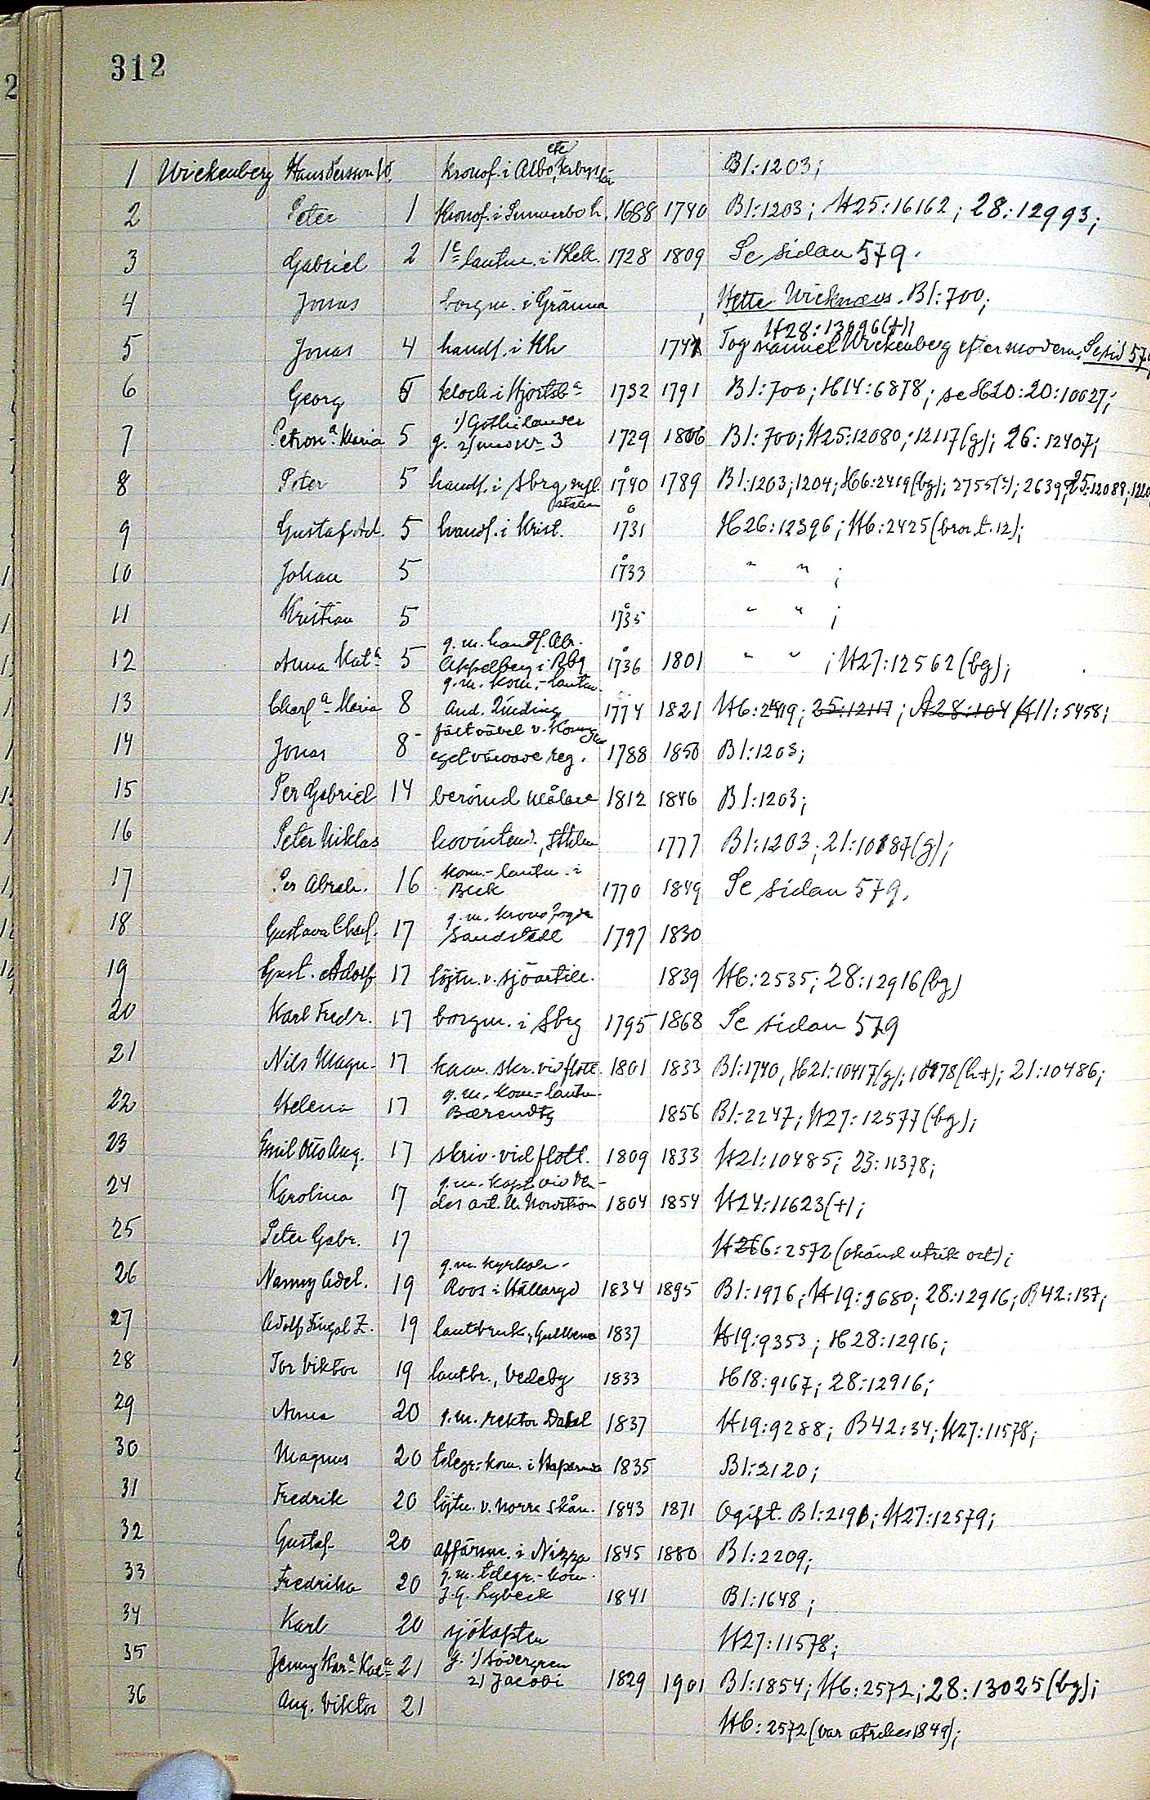 312
1 Wickenberg Hans Persson W. kronof. i Albo, etc B1:1203;
2 Peter 1 kronof. i Sunnerbo h. 1688 1740 B1:1203; H25:16162; 28:12993;
3 Gabriel 2 1e lantm. i Blek. 1728 1809 Se sidan 579.
4 Jonas borgm. i Gränna Hette Wicknæus. B1:700;
H28:13696(t);
5 Jonas 4 handl. i Kh 1741 Tog namnet Wickenberg efter modern. Se sid 579
6 Georg 5 klock. i Hjortsba 1732 1791 B1:700; H14:6878; se H20:20:10027;
7 Petron.a Maria 5 g. 1) Gothilander 2) med Nr 3 1729 1806 B1:700; H25:12080; 12117(g); 26:12407;
8 Peter 5 handl. i Sbrg, 1740 1789 B1:1203; 1204; H6:2419(bg); 2755(t); 2639; 25:12089;
9 Gustaf Ad. 5 handl. i Krist. 1731 H26:12396; H6:2425(bror t. 12);
10 Johan 5 1733 " " ;
11 Kristian 5 1735 " " ;
12 Anna Kata 5 g. m. handl. Abr. Appelberg i Rbg 1736 1801 " " ; H27:12562(bg);
13 Charl.a Maria 8 g. m. kom.-lantm. And. Linding 1774 1821 H6:2419; 25:12117; A28:104 H11:5458;
14 Jonas 8 fältväbel v. Kongs eget värvade reg. 1788 1850 B1:1203;
15 Per Gabriel 14 berömd målare 1812 1846 B1:1203;
16 Peter Niklas hovintend., Sthlm 1777 B1:1203; 21:10187(g);
17 Per Abrah. 16 kom.-lantm. i Blek 1770 1849 Se sidan 579.
18 Gustava Charl. 17 g. m. kronofogde Sandstedt 1797 1830
19 Gust. Adolf 17 löjtn. v. sjöartill. 1839 H6:2535; 28:12916(bg)
20 Karl Fredr. 17 borgm. i Sbrg 1795 1868 Se sidan 579
21 Nils Magn. 17 kam. skr. vid flott. 1801 1833 B1:1740, H21:10417(g); 10478(h+); 21:10486;
22 Helena 17 g. m. kom-lantm. Bærendtz 1856 B1:2247; H27:12577(bg);
23 Emil Otto Aug. 17 skriv. vid flott. 1809 1833 H21:10485; 23:11378;
24 Karolina 17 g. m. kapt. vid Wendes art. N. Nordström 1804 1854 H24:11623(+);
25 Peter Gabr. 17 H6:2572 (okänd utrik. ort);
26 Nanny Adel. 19 g. m. kyrkoh. Roos i Hällaryd 1834 1895 B1:1976; H19:9680; 28:12916; B42:137;
27 Adolf Fingal Z. 19 lantbruk., Gullberna 1837 H19:9353; H28:12916;
28 Tor Viktor 19 lantbr., Vedeby 1833 H18:9167; 28:12916;
29 Anna 20 g. m. rektor Dahl 1837 H19:9288; B42:34; H27:11578;
30 Magnus 20 telegr.-kom. i Haparanda 1835 B1:2120;
31 Fredrik 20 löjtn. v. norra skån. 1843 1871 Ogift. B1:2196; H27:12579;
32 Gustaf 20 affärsm. i Nizza 1845 1880 B1:2209;
33 Fredrika 20 g. m. telegr.-kom. J. G. Lybeck 1841 B1:1648;
34 Karl 20 sjökapten H27:11578;
35 Jenny Kar.a Kata 21 g. 1) Södergren 2) Jacobi 1829 1901 B1:1854; H6:2572; 28:13025(bg);
36 Aug. Viktor 21 H6:2572 (var utrikes 1849);